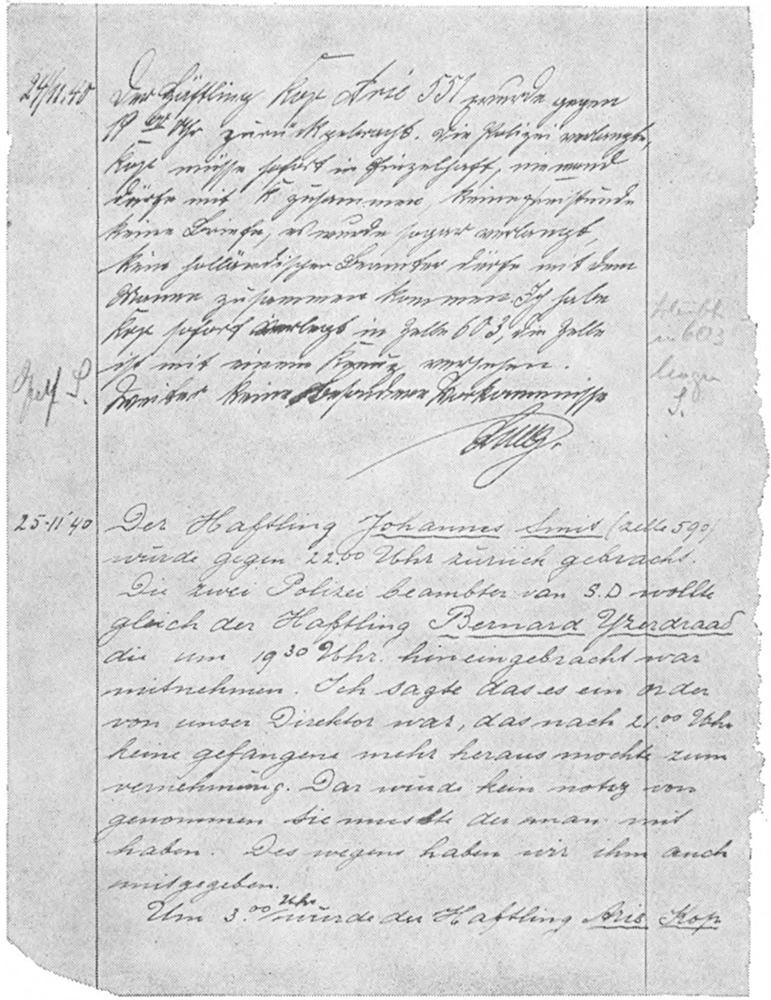 24/11.40
Der Häftling Kop Arie 551 wurde gegen
19 Uhr zurückgebracht. Die Polizei verlangte,
Kop müsse sofort in Einzelhaft, niemand
dürfe mit K zusammen, keine Freistunde
keine Briefe, es wurde sogar verlangt,
kein holländischer Beamter dürfe mit dem
Manne zusammen kommen. Ich habe
Kop sofort verlegt in Zelle 603, die Zelle
ist mit einem Kreuz versehen.
Weiter keine besondere Vorkommnisse
bleibt
in 603
S.
S.
25-11'40
Der Haftling Johannes Smit (zelle 590)
wurde gegen 22.00 Uhr zurück gebracht.
Die zwei Polizei beambter van S.D wollte
gleich der Haftling Bernard Yzerdraad
die um 19 30 Uhr. hineingebracht war
mitnehmen. Ich sagte das es ein order
von unser Direktor war, das nach 21.00 Uhr
keine gefangene mehr heraus mochte zum
vernehmung. Dar wurde kein notiz von
genommen sie musste der man mit
haben. Des wegens haben wir ihm auch
mitgegeben.
Um 3.00 Uhr wurde der Haftling Arie Kop